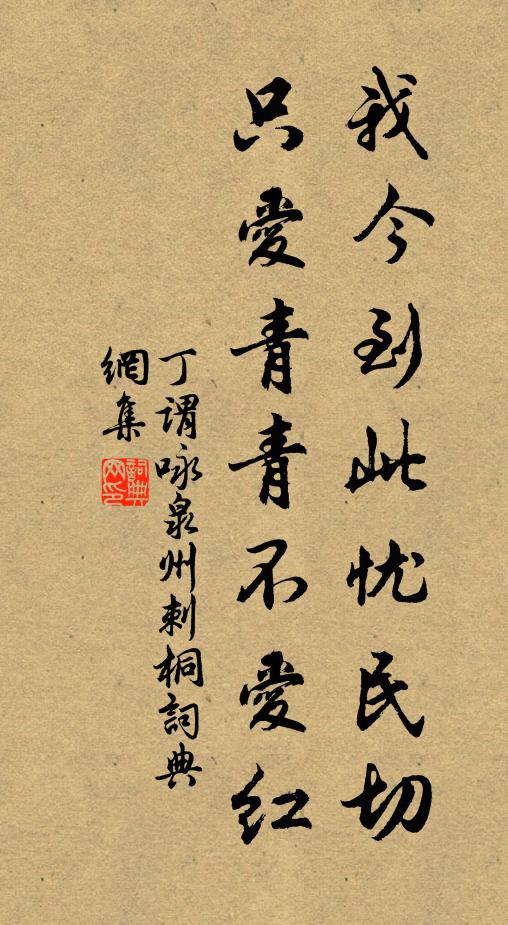 我今到此忧民切
只愛青青不愛红
丁谓咏泉州刺桐詞典
網集
詞典網印